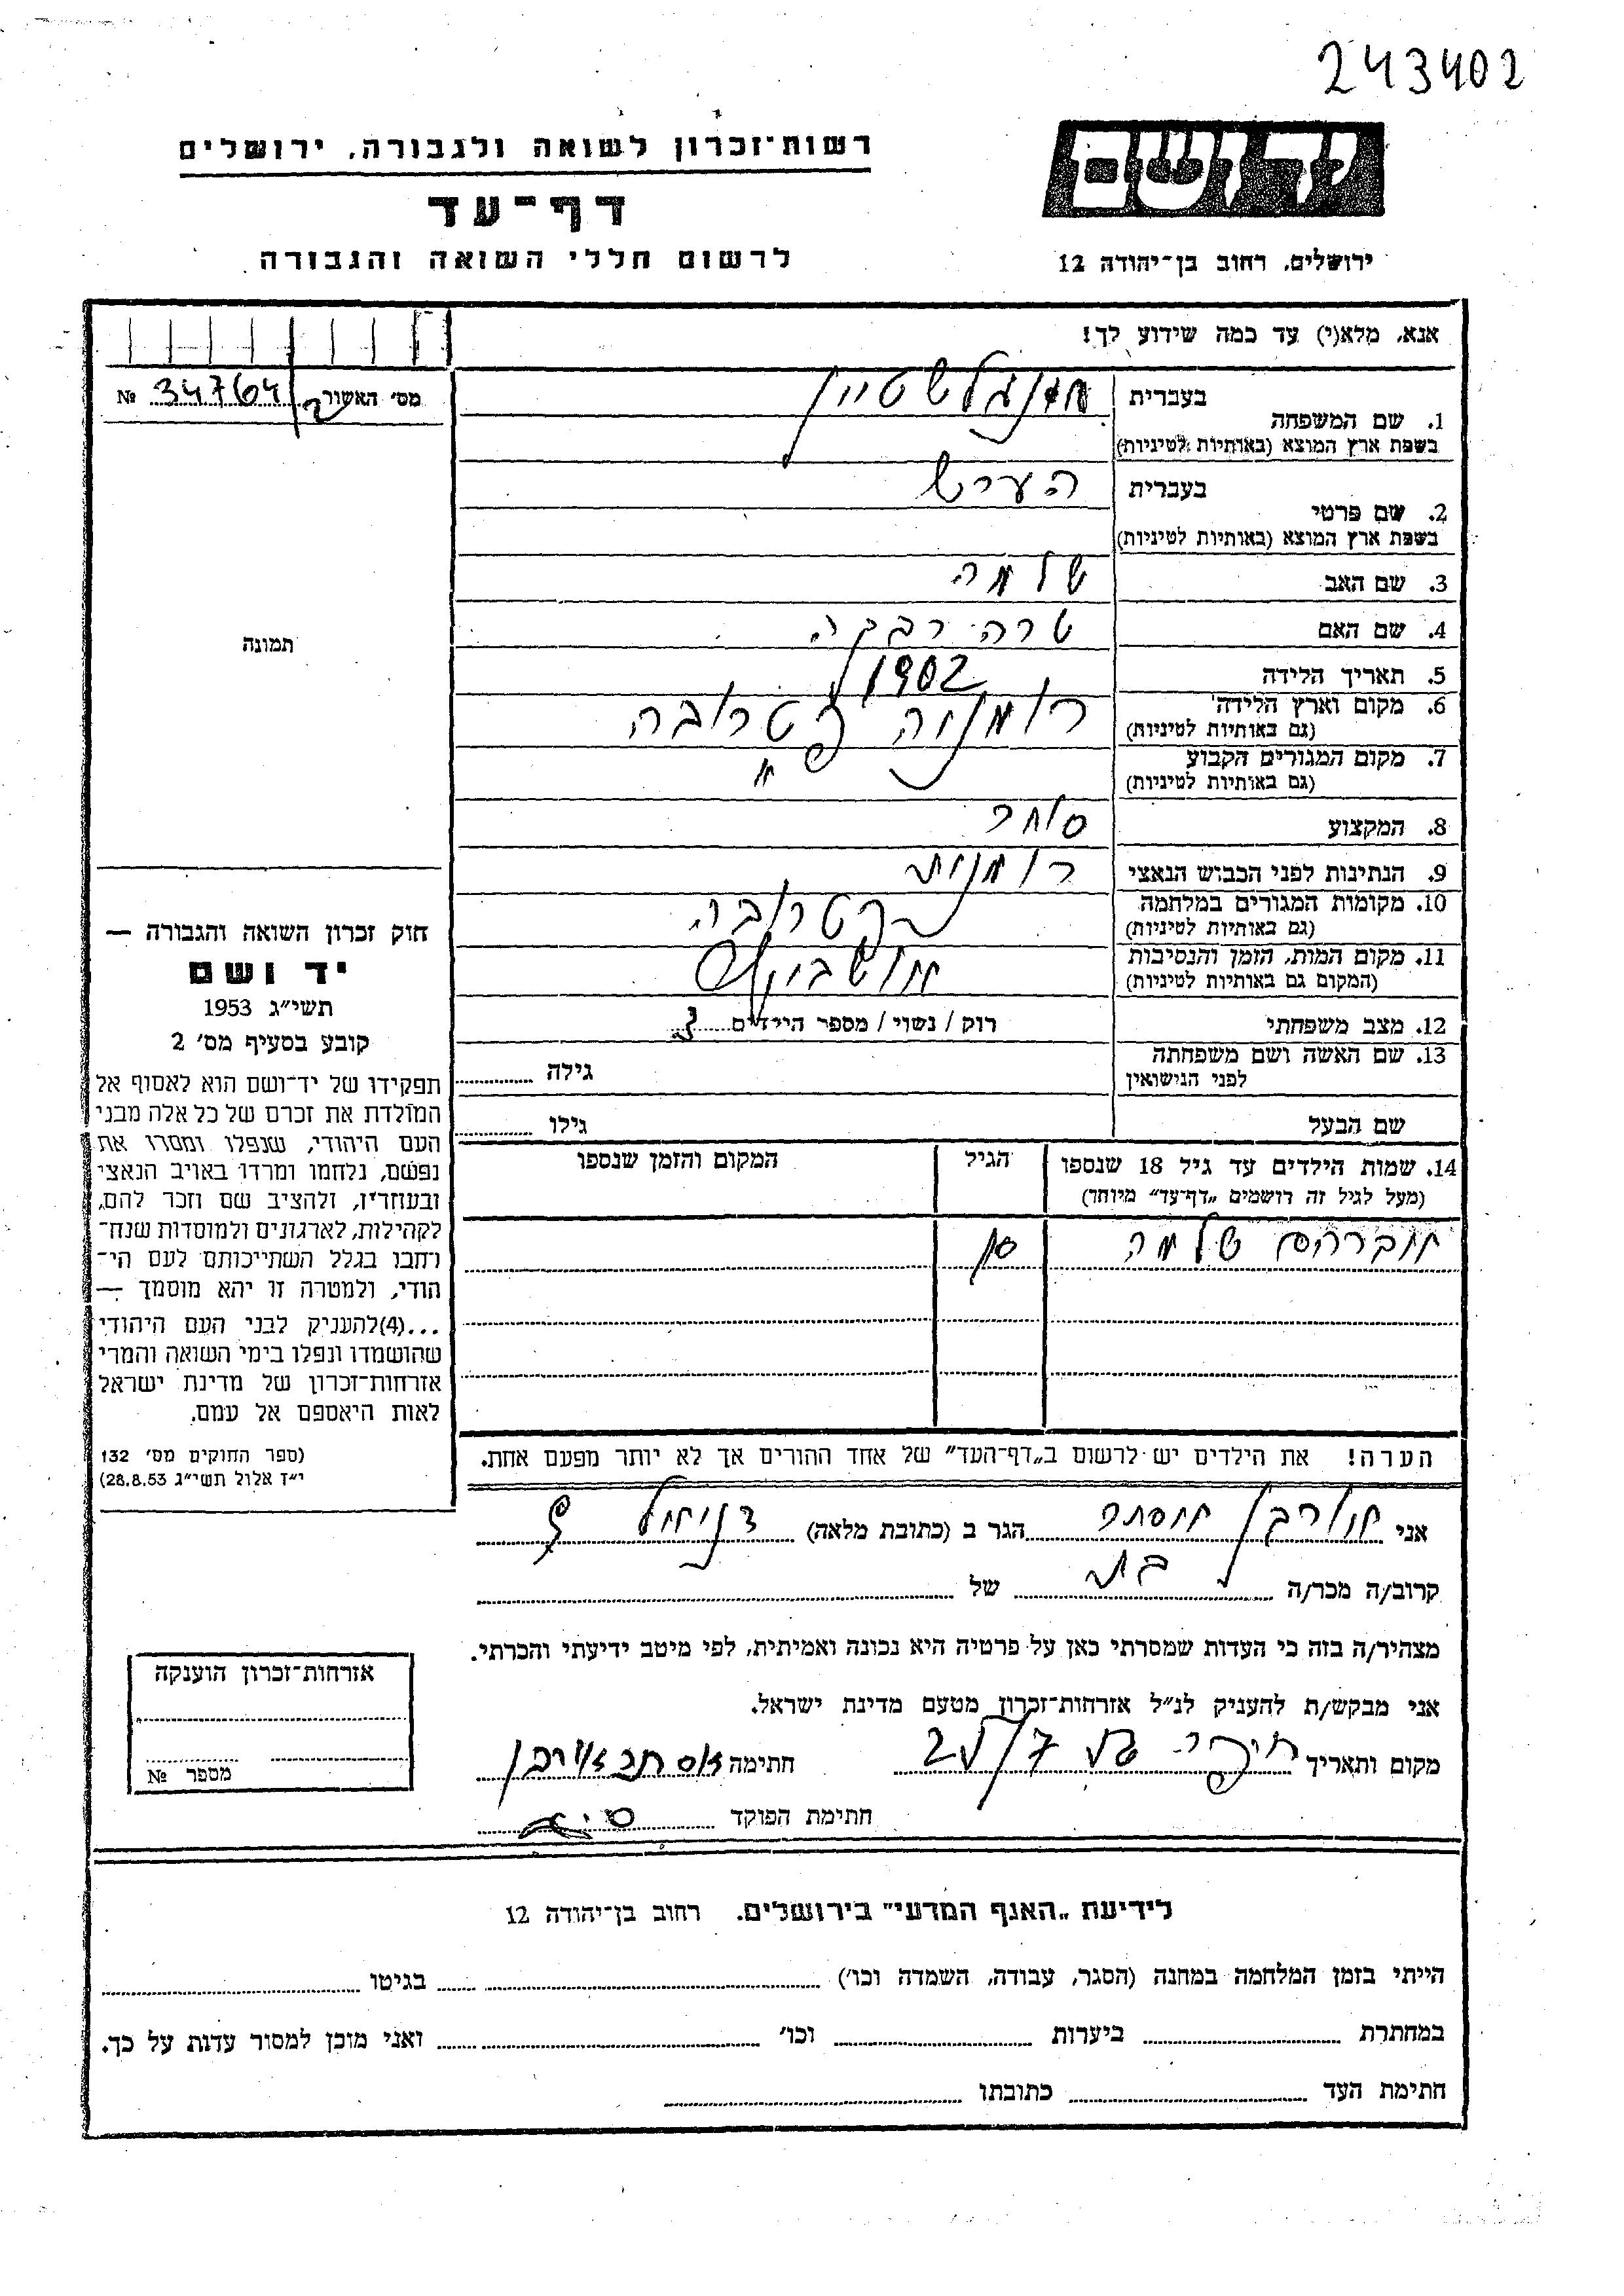 243402
רשות־זכרון לשואה ולגבורה, ירושלים
דף־עד
לרשום חללי השואה והגבורה
ידושם
ירושלים, רחוב בן־יהודה 12
אנא, מלא(י) עד כמה שידוע לך!
מס׳ האשור 34764 №
1. שם המשפחה
בעברית
בשפת ארץ המוצא (באותיות לטיניות)
2. שם פרטי
בעברית הערש
בשפת ארץ המוצא (באותיות לטיניות)
3. שם האב שלמה
4. שם האם שרה רבקה
5. תאריך הלידה 1902
6. מקום וארץ הלידה רומניה פטרובה
(גם באותיות לטיניות)
7. מקום המגורים הקבוע "
(גם באותיות לטיניות)
8. המקצוע סוחר
9. הנתינות לפני הכבוש הנאצי רומנית
10. מקומות המגורים במלחמה פטרובה
(גם באותיות לטיניות)
11. מקום המות, הזמן והנסיבות אושביץ
(המקום גם באותיות לטיניות)
12. מצב משפחתי רוק / נשוי / מספר הילדים
13. שם האשה ושם משפחתה גילה
לפני הנישואין
שם הבעל גילו
14. שמות הילדים עד גיל 18 שנספו הגיל המקום והזמן שנספו
(מעל לגיל זה רושמים „דף־עד" מיוחד)
אברהם שלמה
הערה! את הילדים יש לרשום ב„דף־העד" של אחד ההורים אך לא יותר מפעם אחת.
תמונה
חוק זכרון השואה והגבורה —
יד ושם
תשי״ג 1953
קובע בסעיף מס׳ 2
תפקידו של יד־ושם הוא לאסוף אל
המולדת את זכרם של כל אלה מבני
העם היהודי, שנפלו ומסרו את
נפשם, נלחמו ומרדו באויב הנאצי
ובעוזריו, ולהציב שם וזכר להם,
לקהילות, לארגונים ולמוסדות שנח־
רחבו בגלל השתייכותם לעם הי־
הודי, ולמטרה זו יהא מוסמך —
...(4)להעניק לבני העם היהודי
שהושמדו ונפלו בימי השואה והמרי
אזרחות־זכרון של מדינת ישראל
לאות היאספם אל עמם.
(ספר החוקים מס׳ 132
י״ד אלול תשי״ג 28.8.53)
אני אורבן אסתר הגר ב (כתובת מלאה) דניאל
קרוב/ה מכר/ה בת של
מצהיר/ה בזה כי העדות שמסרתי כאן על פרטיה היא נכונה ואמיתית, לפי מיטב ידיעתי והכרתי.
אני מבקש/ת להעניק לנ״ל אזרחות־זכרון מטעם מדינת ישראל.
מקום ותאריך חתימה אסתר אורבן
חתימת הפוקד
אזרחות־זכרון הוענקה
מספר №
לידיעת „האגף המדעי" בירושלים. רחוב בן־יהודה 12
הייתי בזמן המלחמה במחנה (הסגר, עבודה, השמדה וכו׳) בגיטו
במחתרת ביערות וכו׳ ואני מוכן למסור עדות על כך.
חתימת העד כתובתו